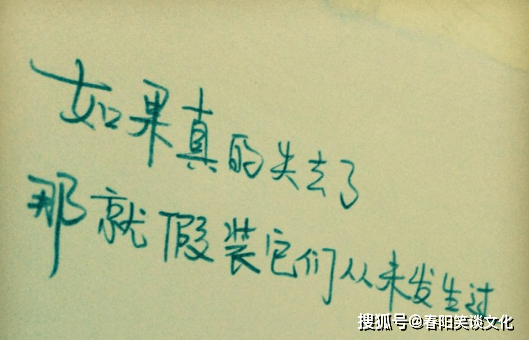 如果真的失去了
那就假装它们从未发生过
搜狐号@春阳笑谈文化